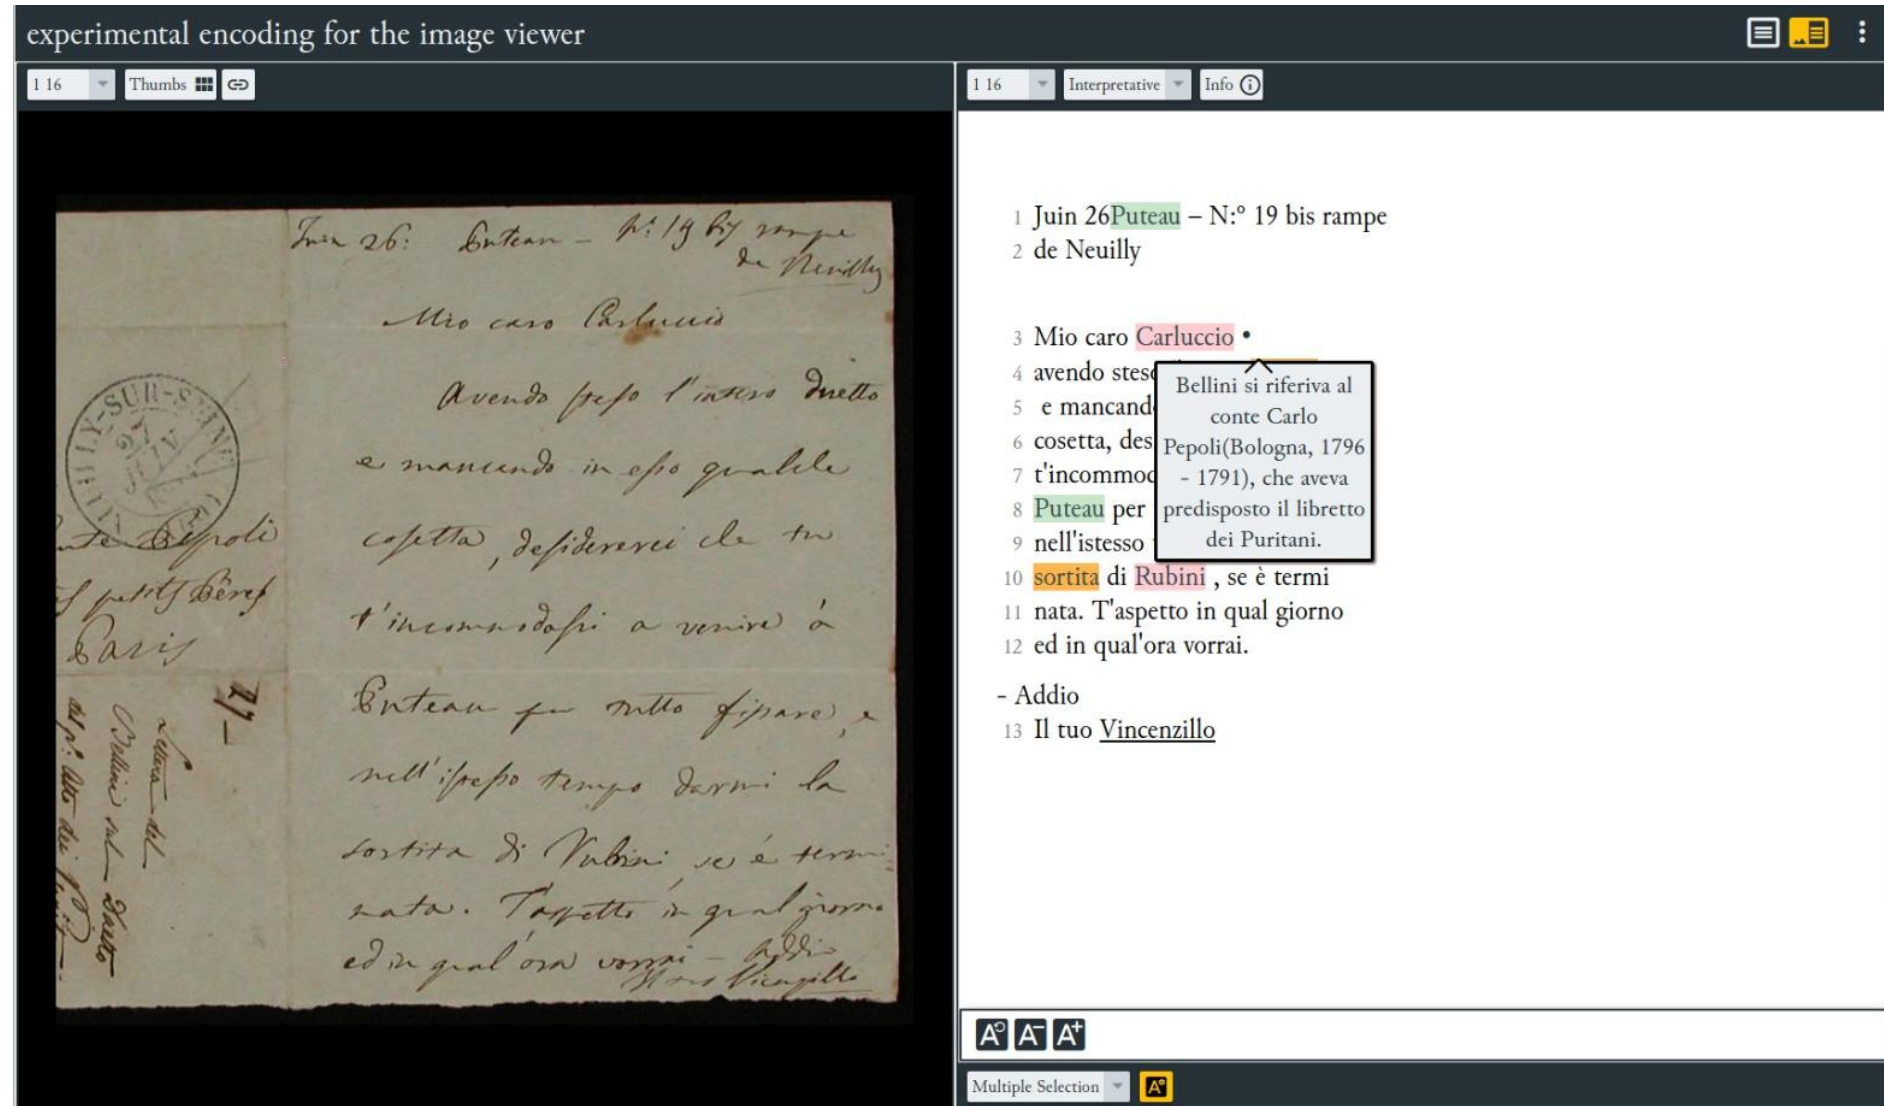 experimental encoding for the image viewer
1 16
Thumbs
Juin 26: Puteau – N.º 19 bis rampe
de Neuilly
Mio caro Carluccio
Avendo steso l'intero Duetto
e mancando in esso qualche
cosetta, desidererei che tu
t'incommodassi a venire à
Puteau per tutto fissare, e
nell'istesso tempo darmi la
sortita di Rubini, se è termi
nata. T'aspetto in qual giorno
ed in qual'ora vorrai – Addio
NEUILLY-SUR-SEINE
27
Pepoli
petits Pères
Paris
27–
Lettera del
Bellini sul Duetto
del pº Atto dei
1 16
Interpretative
Info
1 Juin 26Puteau – N:º 19 bis rampe
2 de Neuilly
3 Mio caro Carluccio •
4 avendo steso
5 e mancando
6 cosetta, des
7 t'incommod
8 Puteau per
9 nell'istesso
10 sortita di Rubini , se è termi
11 nata. T'aspetto in qual giorno
12 ed in qual'ora vorrai.
- Addio
13 Il tuo Vincenzillo
Bellini si riferiva al
conte Carlo
Pepoli(Bologna, 1796
- 1791), che aveva
predisposto il libretto
dei Puritani.
A A- A+
Multiple Selection